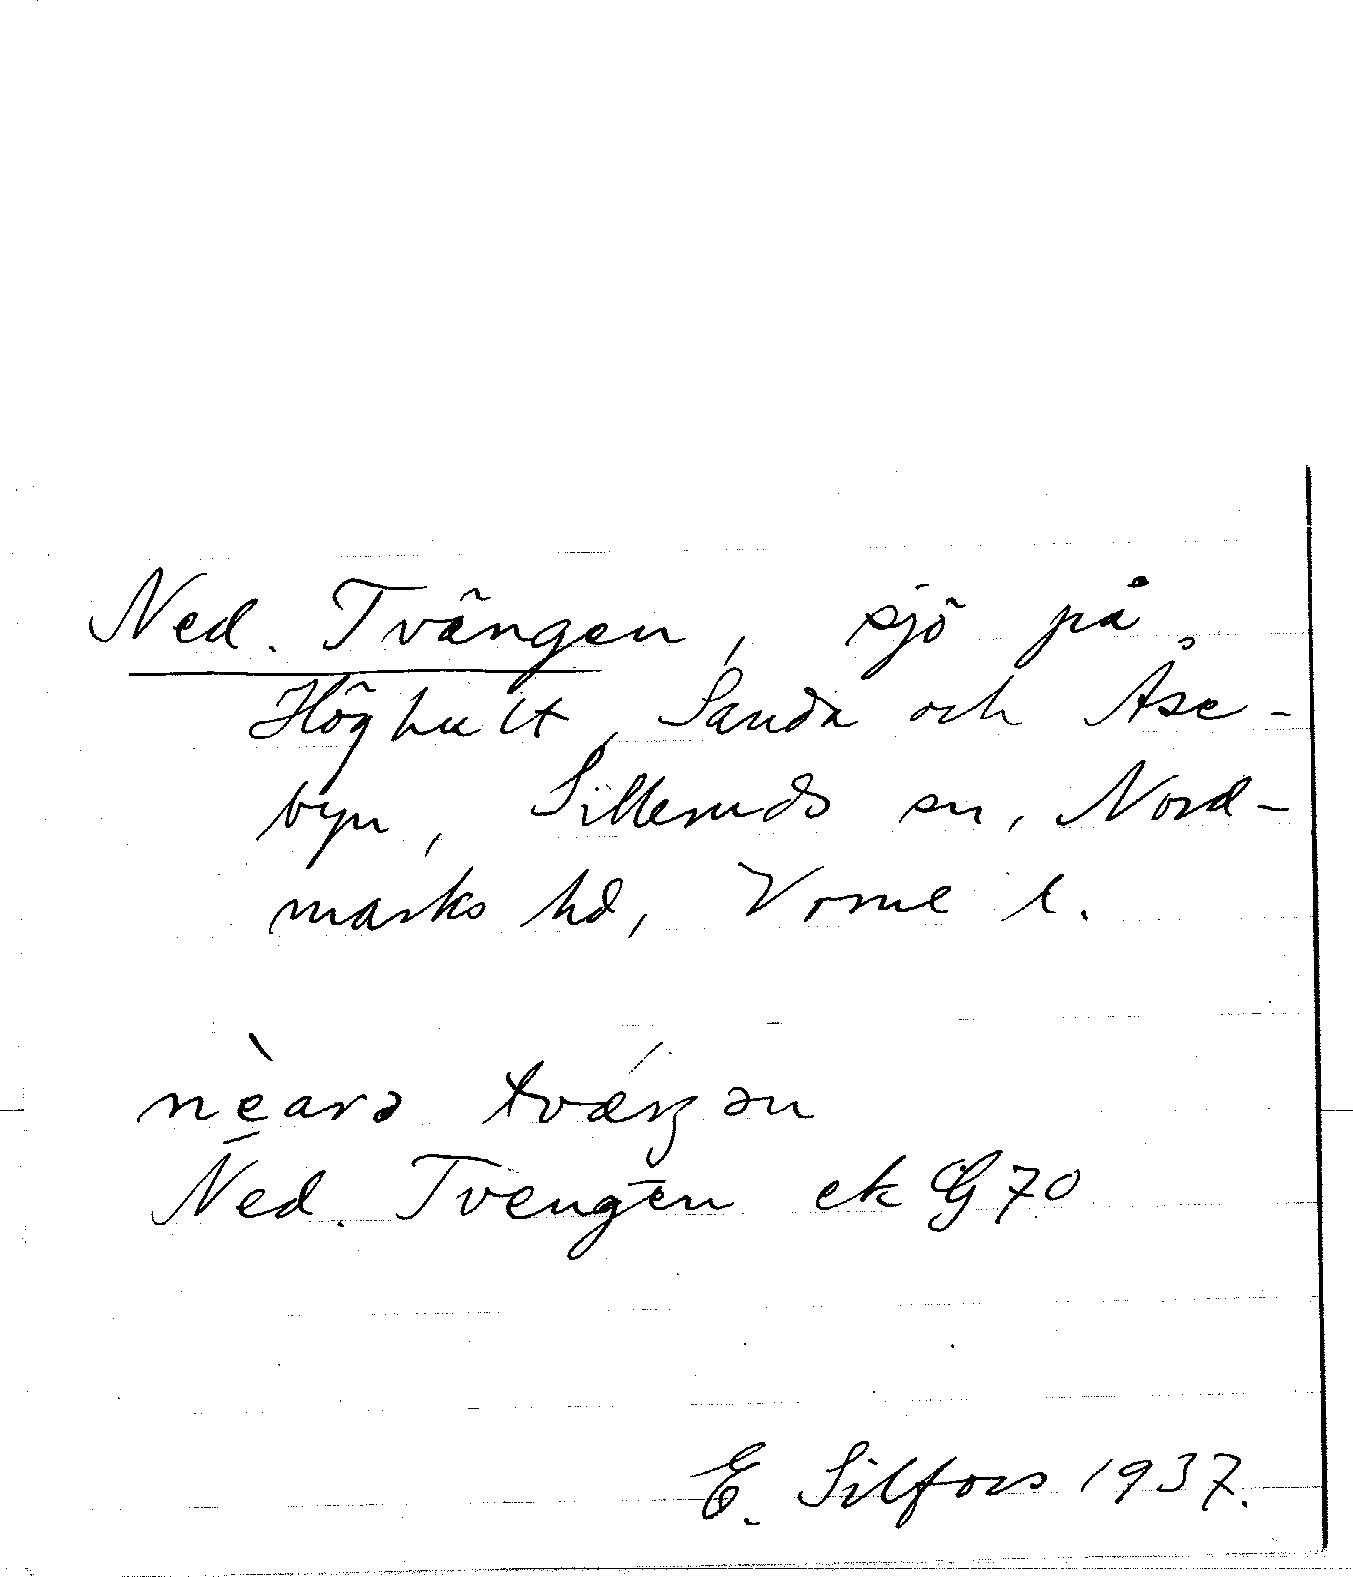 Ned. Tvängen, sjö på
Höghult, Sanda och Åse-
byn, Silleruds sn, Nord-
marks hd, Vrml l.
nèarə tvǽŋən
Ned. Tvengen ek G 70
E. Silfors 1937.